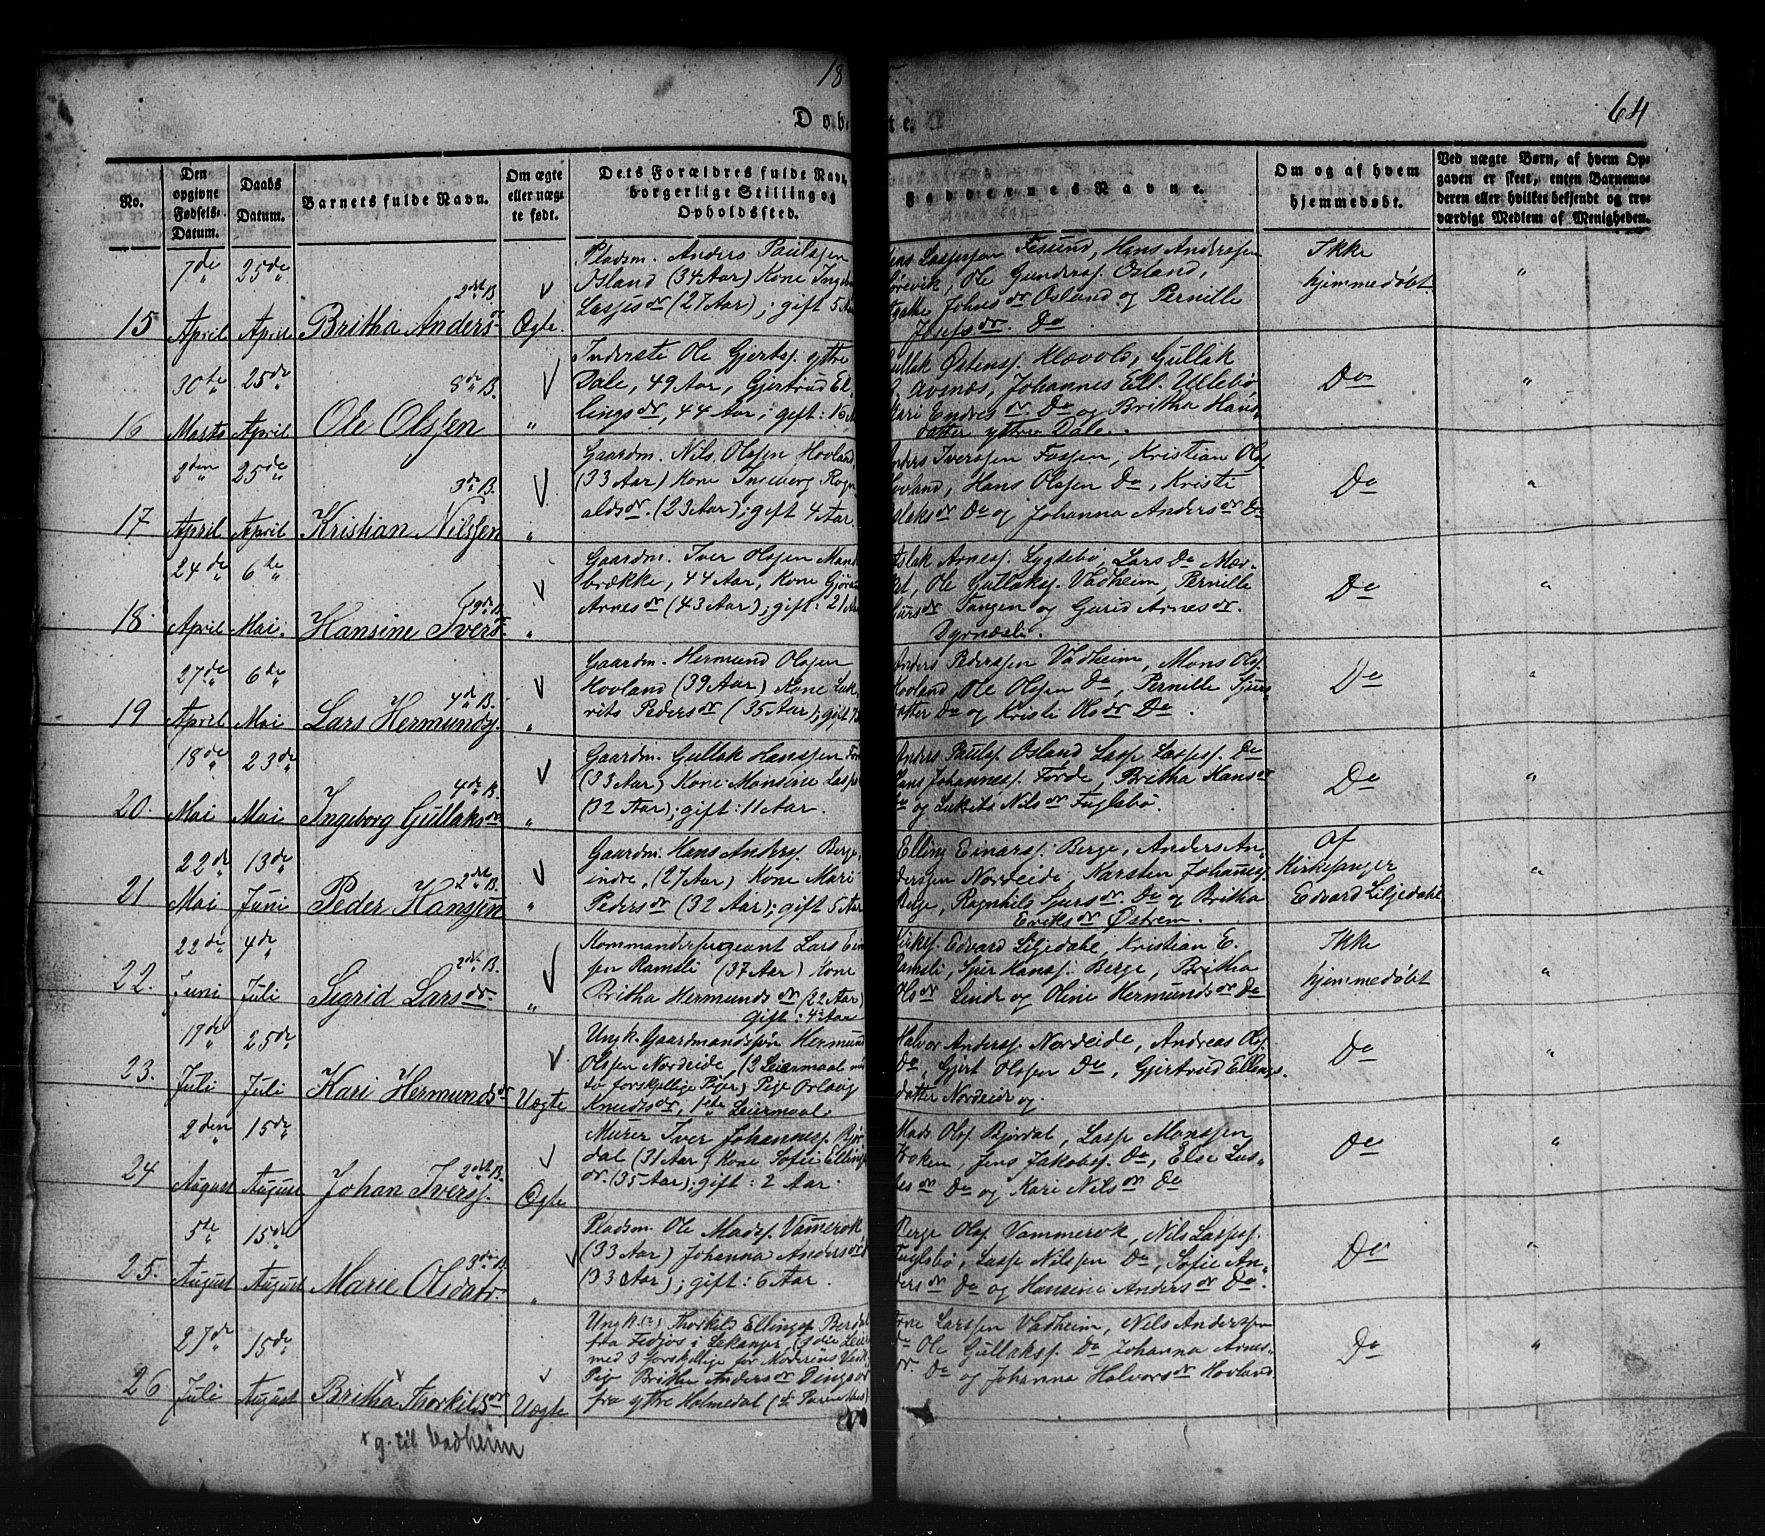 18
64
Døb
te.
No.
Den opgivne Fødsels-Datum.
Daabs Datum.
Barnets fulde Navn.
Om ægte eller uægte født.
Dets Forældres fulde Navn, borgerlige Stilling og Opholdssted.
Faddernes Navne.
Om og af hvem hjemmedøbt.
Ved uægte Børn, af hvem Opgaven er skeet, enten Barnemoderen eller hvilket bekjendt og troværdigt Medlem af Menigheden.
15
7de April
25de April
2det B.
Britha Andersdr
Ægte.
Pladsm. Anders Paulssen
Osland (34 Aar) Kone Inge
Lassesdr (27 Aar); gift 5 Aar
Lassessen Fesund, Hans Anderssen
Ole Gunderss. Osland,
Johnsdr Osland og Pernille
Josefsdr. Do
Ikke
hjemmedøbt
"
16
30te Marts
25de April
8de B.
Ole Olssen
"
Inderste Ole Gjertss. yttre
Dale, 49 Aar, Gjertrud El-
lingsdr, 44 Aar; gift: 1
Gullak Østenss. Klævold, Gullak
Avsnæs, Johannes Ell. Ullebø
Kari Endresdr. Do og Britha Hans-
datter yttre Dale.
Do
"
17
2den April
25de April
3die B.
Kristian Nilssen
"
Gaardm. Nils Olssen Hovland,
(33 Aar) Kone Ingeborg Rogn-
aldsdr. (23 Aar); gift 4 Aar
Anders Iverssen Fossen, Kristian Olss.
Hovland, Hans Olssen Do, Kristi
Aslaksdr Do og Johanna Andersdr Do
Do
"
18.
24de April
6te Mai.
9de B.
Hansine Iversdr
"
Gaardm. Iver Olssen Mand
brække, 44 Aar, Kone Gjøri
Arnesdr (43 Aar); gift: 21 Aar
Aslak Arness. Lygtebø, Lars Do
Ole Gullakss. Vadheim, Pernille
Sjursdr Tangen og Gurid Arnesdr.
Dyrnæsli.
Do
"
19
27de April
6te Mai
4de B.
Lars Hermunds.
"
Gaardm. Hermund Olssen
Hovland (39 Aar) Kone Luk-
rits Pedersdr (35 Aar); gift
Anders Pederssen Vadheim, Mons Olss.
Hovland, Ole Olssen Do, Pernille Sjurs-
datter Do og Kristi Olsdr Do
Do
"
20.
18de Mai
23de Mai
4de B.
Ingeborg Gullaksdr
"
Gaardm. Gullak Hanssen
(33 Aar) Kone Monsine Lasse
(32 Aar); gift: 11 Aar.
Anders Paulss. Osland, Lasse Lasses. Do
Hans Johanness. Førde, Britha Hansdr
Do og Lukrits Nilsdr Fuglebø.
Do
"
21
22de Mai
13de Juni
2det B.
Peder Hanssen
"
Gaardm. Hans Anderss. Berge,
indre, (27 Aar) Kone Mari
Pedersdr (32 Aar); gift 5 Aar
Elling Einarss. Berge, Anders An-
derssen Nordeide, Karsten Johanness.
Berge, Ragnhild Sjursdr. Do og Britha
Eriksdr Østrem.
Af
Kirkesanger
Edvard Liljedahl
"
22.
22de Juni
4de Juli
2det B.
Sigrid Larsdr.
"
Kommandersergeant Lars Ein
sen Ramsli (37 Aar) Kone
Britha Hermundsdr (22 Aar)
gift: 4 Aar
Kirkes. Edvard Liljedahl, Kristian E.
Ramsli, Sjur Hanss. Berge, Britha
Olsdr Linde og Oline Hermundsdr Do
Ikke
hjemmedøbt
"
23.
17de Juli
25de Juli
Kari Hermundsdr
Uægte
Ungk. Gaardmandssøn Hermund
Olssen Nordeide, (2 Leiermaal med
to forskjellige Piger) Pige Orlaug
Knudsdr, 1ste Leiermaal.
Halvor Anderss. Nordeide, Andreas Olss.
Do, Gjert Olssen Do, Gjertrud Ellings-
datter Nordeide og
Do
"
24
2den August
15de August
2det B.
Johan Iverss.
Ægte
Murer Iver Johanness. Bjør
dal (31 Aar) Kone Sofie Ellings
dr. (35 Aar); gift: 2 Aar.
Mads Olss. Bjordal, Lasse Monssen
Jens Jakobss. Do, Else Las-
sesdr Do og Kari Nilsdr Do
Do
"
25.
5te August
15de August
3die B.
Marie Olsdatr.
"
Pladsm. Ole Madss. Vamerak
(33 Aar) Johanna Andersdr
(33 Aar); gift: 6 Aar.
Berge Olss. Vammerak, Nils Lassess.
Fuglebø, Lasse Nilssen Do, Sofie An-
dersdr Do og Hansine Andersdr Do.
Do
"
26
27de Juli
15de August
Britha Thorkildsdr
Uægte
Ungk. (?) Thorkild Ellings. Berdal
fra Fedjos i Lekanger, (3die Leier
med 3 forskellige for Moderens Vedk.
Pig. Britha Andersdr Dingsør
fra yttre Holmedal
Arne Larssen Vadheim, Nils Anderssen
Do Ole Gullakss. Do Johanna Arnes-
dr. Do og Johanna Halvorsdr Hovland
Do
"
x g. til Vadheim